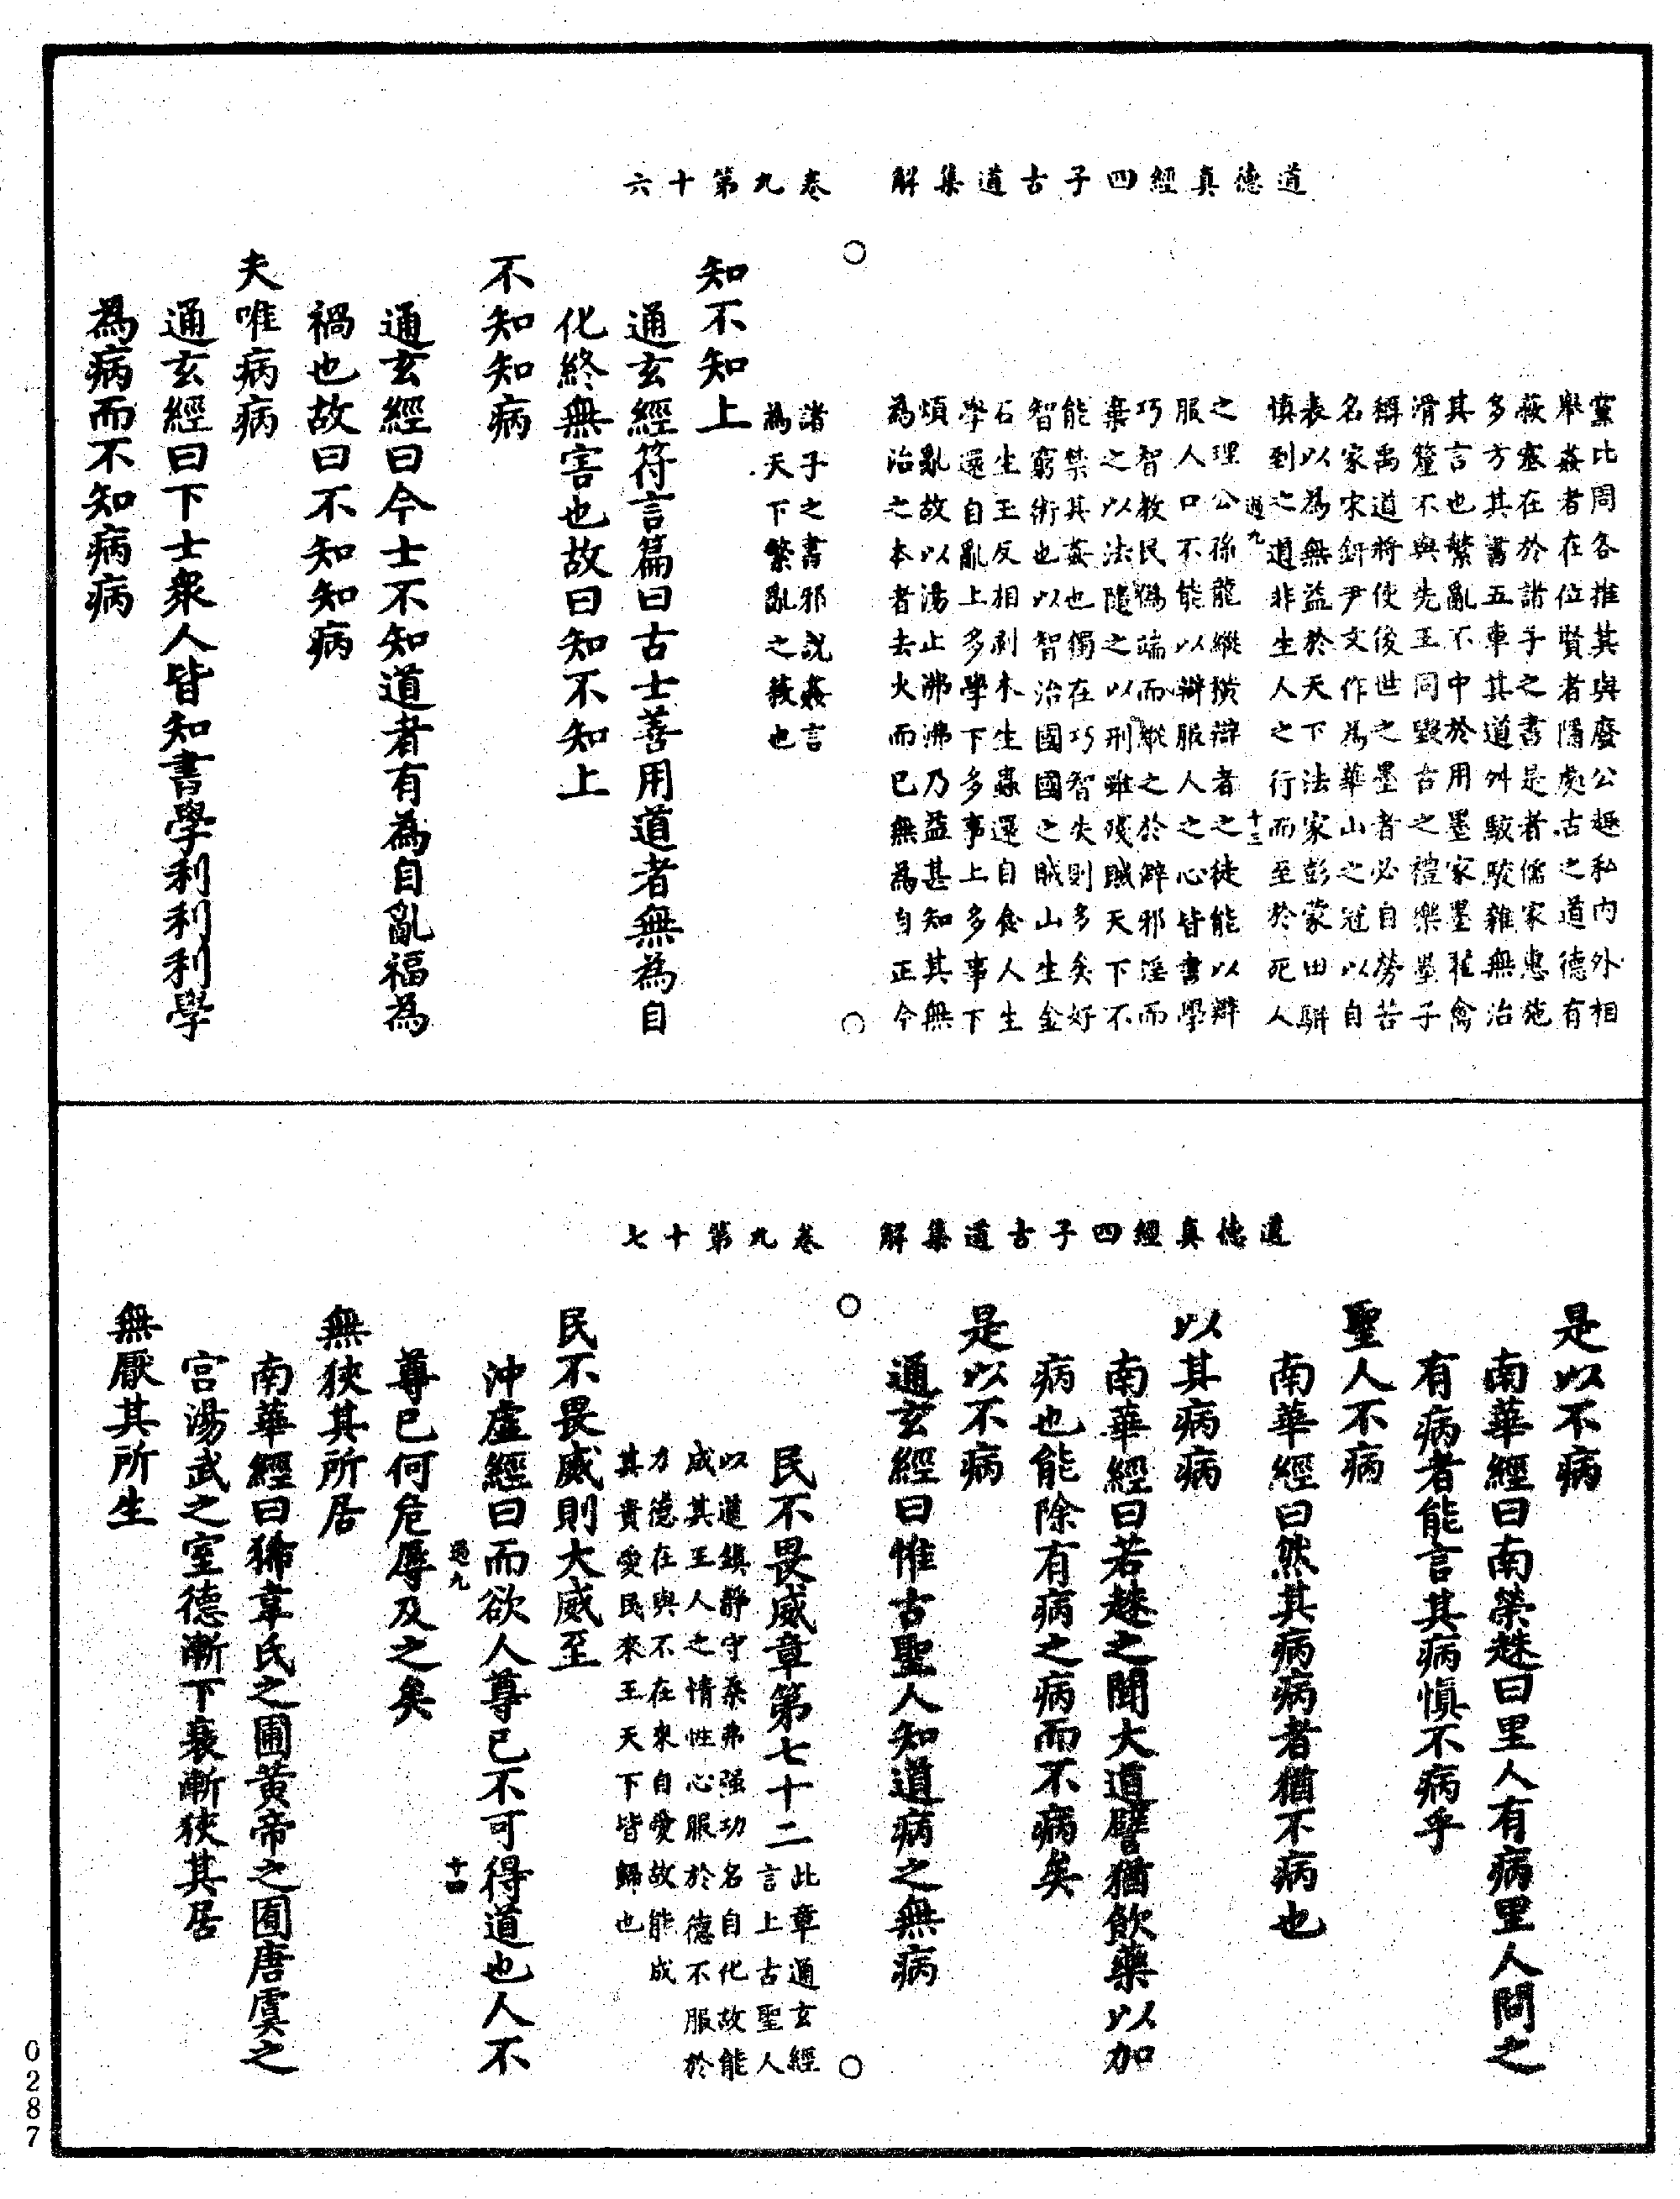 道德真經四子古道集解　卷九第十六
黨比周各推其與廢公趣私內外相
舉姦者在位賢者隱處古之道德有
蔽塞在於諸子之書是者儒家惠施
多方其書五車其道舛駁駁雜無治
其言也繁亂不中於用墨家墨翟禽
滑釐不與先王同毀古之禮樂墨子
稱禹道將使後世之墨者必自勞苦
名家宋鈃尹文作為華山之冠以自
表以為無益於天下法家彭蒙田駢
慎到之道非生人之行而至於死人
過九　十三
之理公孫龍縱橫辯者之徒能以辯
服人口不能以辯服人之心皆書學
巧智教民偽端而縱之於僻邪淫而
棄之以法隨之以刑雖殘賊天下不
能禁其姦也獨在巧智失則多矣好
智窮術也以智治國國之賊山生金
石生玉反相剥木生蟲還自食人生
學還自亂上多學下多事上多事下
煩亂故以湯止沸沸乃益甚知其無
為治之本者去火而已無為自正今
諸子之書邪說姦言
為天下繁亂之蔽也
知不知上
通玄經符言篇曰古士善用道者無為自
化終無害也故曰知不知上
不知知病
通玄經曰今士不知道者有為自亂福為
禍也故曰不知知病
夫唯病病
通玄經曰下士衆人皆知書學利利利學
為病而不知病病
道德真經四子古道集解　卷九第十七
是以不病
南華經曰南榮趎曰里人有病里人問之
有病者能言其病慎不病乎
聖人不病
南華經曰然其病病者猶不病也
以其病病
南華經曰若趎之聞大道譬猶飲藥以加
病也能除有病之病而不病矣
是以不病
通玄經曰惟古聖人知道病之無病
民不畏威章第七十二
此章通玄經
言上古聖人
以道鎮靜守柔弗强功名自化故能
成其王人之情性心服於德不服於
力德在與不在來自愛故能成
其貴愛民來王天下皆歸也
民不畏威則大威至
沖虛經曰而欲人尊已不可得道也人不
過九　十四
尊已何危辱及之矣
無狹其所居
南華經曰狶韋氏之圃黃帝之囿唐虞之
宮湯武之室德漸下衰漸狹其居
無厭其所生
0287